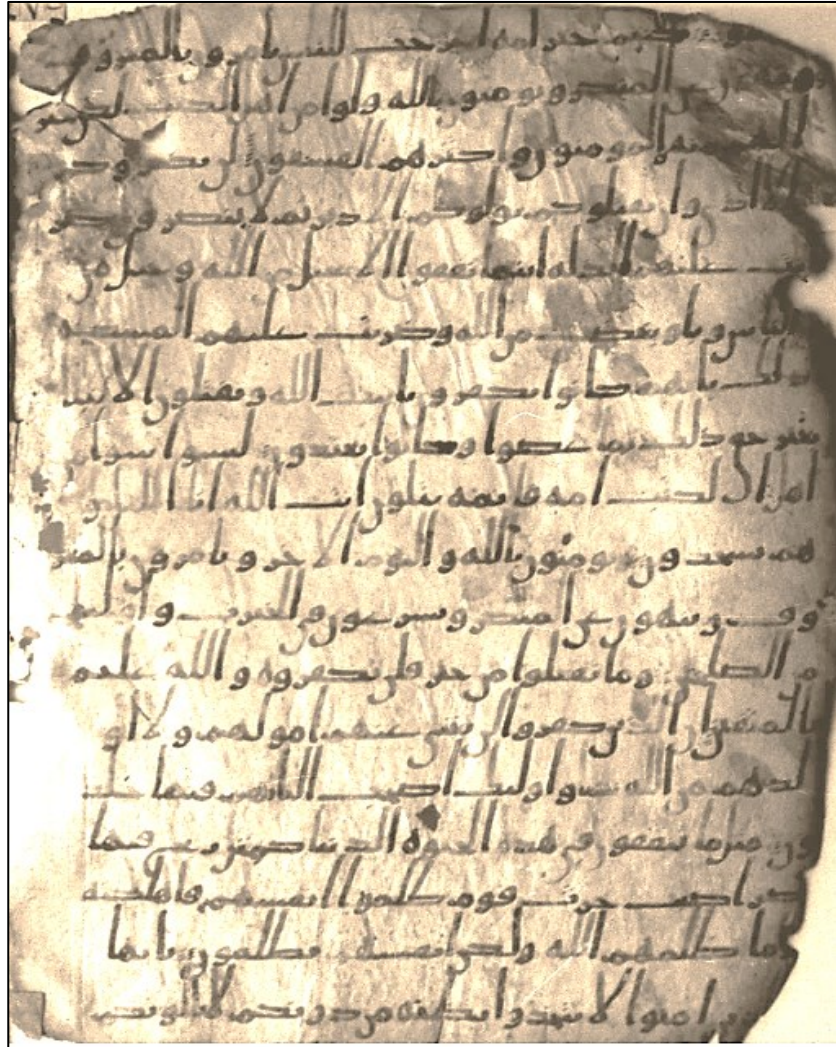 كنتم خير امة اخرجت للناس تامرون بالمعروف
وتنهون عن المنكر وتومنون بالله ولو امن اهل الكتب لكن خير
لهم منهم المومنون واكثرهم الفسقون لن يضروكم
الا اذى وان يقتلوكم يولوكم الادبر ثم لا ينصرون ضر
بت عليهم الذلة اينما ثقفوا الا بحبل من الله وحبل من
الناس وباو بغضب من الله وضربت عليهم المسكنة
ذلك بانهم كانوا يكفرون بايت الله ويقتلون الانبيا
بغير حق ذلك بما عصوا وكانوا يعتدون ليسوا سوا من
اهل الكتب امة قايمة يتلون ايت الله انا اليل و
هم يسجدون يومنون بالله واليوم الاخر ويامرون بالمعر
وف وينهون عن المنكر ويسرعون في الخيرت واوليك
من الصلحين وما تفعلوا من خير فلن تكفروه والله عليم
بالمتقين ان الذين كفروا لن تغني عنهم امولهم ولا او
لدهم من الله شيا واوليك اصحب النار هم فيها خلد
ون مثل ما ينفقون في هذه الحيوة الدنيا كمثل ريح فيها
صر اصبت حرث قوم ظلموا انفسهم فاهلكته
وما ظلمهم الله ولكن انفسهم يظلمون يايها
الذين امنوا لا تتخذوا بطنة من دونكم لا يالونكم